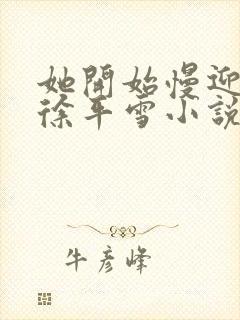 她開始慢迎
徐平雪小說
牛彥峰